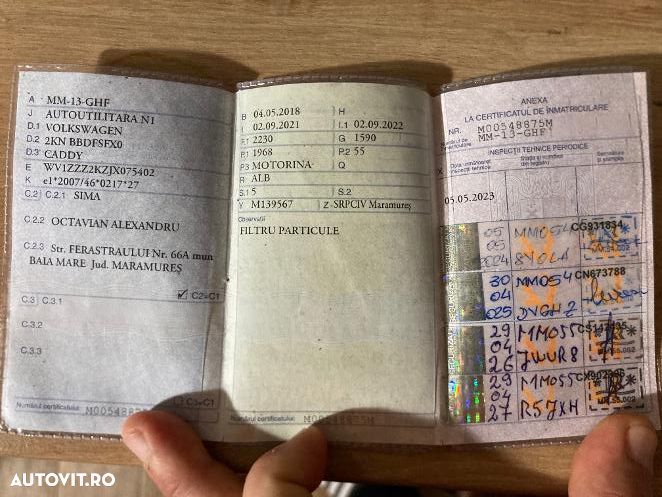 A MM-13-GHF
J AUTOUTILITARA N1
D.1 VOLKSWAGEN
D.2 2KN BBDFSFX0
D.3 CADDY
E WV1ZZZ2KZJX075402
K e1*2007/46*0217*27
C.2 C.2.1 SIMA
C.2.2 OCTAVIAN ALEXANDRU
C.2.3 Str. FERASTRAULUI Nr. 66A mun
BAIA MARE Jud. MARAMUREȘ
C2=C1
C.3 C.3.1
C.3.2
C.3.3
C3=C1
Numărul certificatului M00548875M
B 04.05.2018 H
I 02.09.2021 I.1 02.09.2022
F.1 2230 G 1590
P.1 1968 P.2 55
P.3 MOTORINA Q
R ALB
S.1 5 S.2
Y M139567 Z SRPCIV Maramureș
Observații
FILTRU PARTICULE
Numărul certificatului M00548875M
ANEXA
LA CERTIFICATUL DE ÎNMATRICULARE
NR. M00548875M
MM-13-GHF
INSPECȚII TEHNICE PERIODICE
X
05.05.2023
05 MM054 CG931834
05
30 MM054 CN673788
04
025
29 MM055
04 JWUR8
26
29 MM055
04 R5JXH
27
AUTOVIT.RO